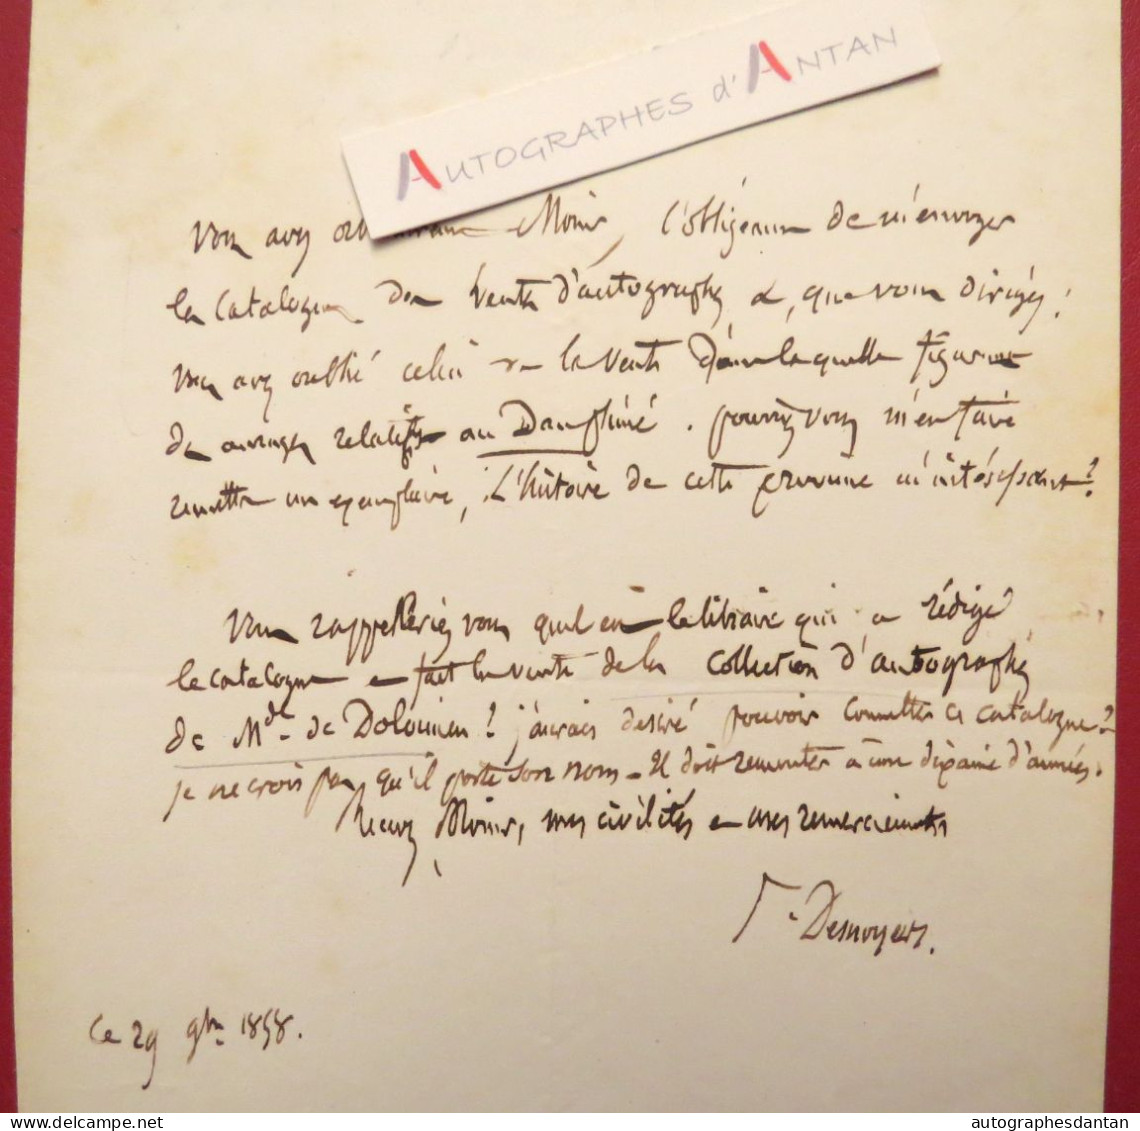 AUTOGRAPHES d'ANTAN
Vous avez Monsr, l'obligeance de m'envoyer
les catalogues des ventes d'autographes &, que vous dirigez.
Vous avez oublié celui de la vente dans laquelle figurent
des ouvrages relatifs au Dauphiné. pourriez vous m'en faire
remettre un exemplaire, L'histoire de cette province m'intéressant?
Vous rappelleriez vous quel est le libraire qui a rédigé
le catalogue et fait la vente de la collection d'autographes
de Mde de Dolomieu? j'aurais desiré pouvoir connaitre ce catalogue.
je ne crois pas qu'il porte son nom. Il doit remonter à une dixaine d'années.
Recevez Monsr, mes civilités et mes remerciements
J. Desnoyers.
Ce 29 9bre 1858.
delcampe.net
autographesdantan